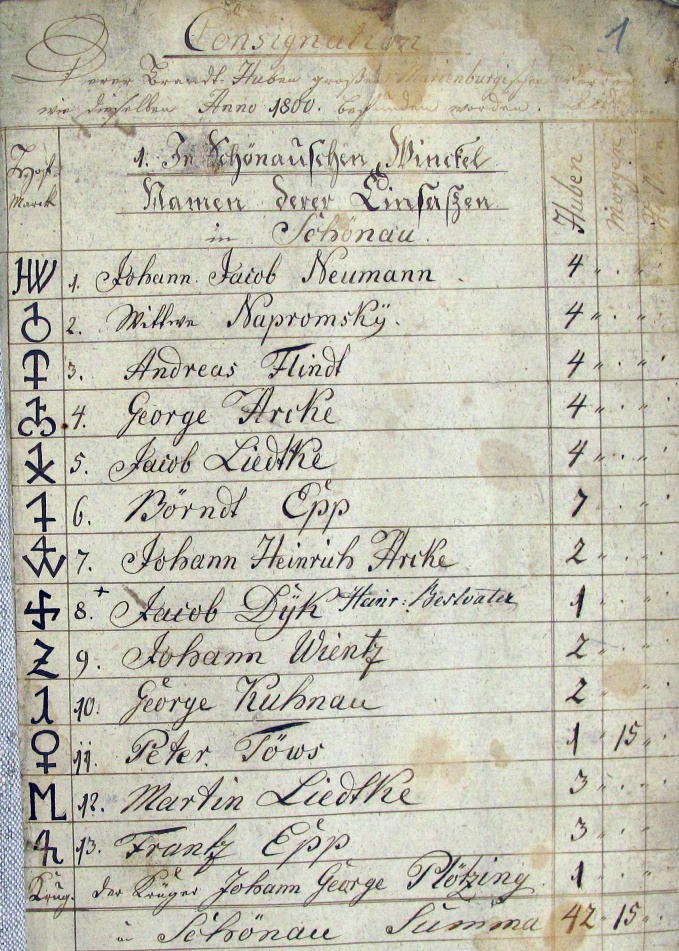 1
Consignation
Derer Brandt-Huben großen Marienburgischen
wie dieselben Anno 1800. befunden worden.
Hoff-Marck
1. In Schönauschen Winckel
Namen derer Einsaßen
in Schönau.
Huben Morgen
HW 1. Johann Jacob Neumann 4 " . "
2. Wittwe Napromskÿ. 4 " . "
3. Andreas Flindt 4 " . "
4. George Arcke 4 " . "
5. Jacob Liedtke 4 " . "
6. Börndt Epp 7 " . "
7. Johann Heinrich Arcke 2 " . "
8. + Jacob Dÿk Heinr: Bestvater 1 " . "
9. Johann Wientz 2 " . "
10. George Kuhnau 2 " . "
11. Peter Töws 1 15 "
12. Martin Liedtke 3 " . "
13. Frantz Epp 3 " . "
Krug. der Krüger Johann George Plötzing 1 " . "
in Schönau Summa 42 15 "